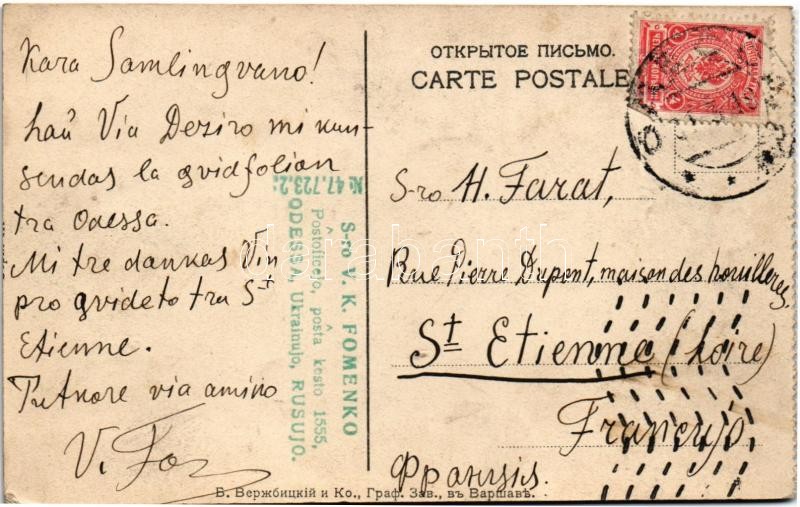 Kara Samlingvano!
laŭ Via Deziro mi kun-
sendas la gvidfolian
tra Odessa.
Mi tre dankas Vin
pro gvideto tra St
Etienne.
Tutkore via amiko
V. Fo
№ 47.723.2
S-ro V. K. FOMENKO
Poŝtoficejo, poŝta kesto 1555,
ODESSA, Ukrainujo, RUSUJO.
ОТКРЫТОЕ ПИСЬМО.
CARTE POSTALE
S-ro H. Farat,
Rue Pierre Dupont, maison des houilleres,
St Etienne (Loire)
Francujo,
Франція.
Б. Вержбицкій и Ко., Граф. Зав., въ Варшавѣ.
darabanth